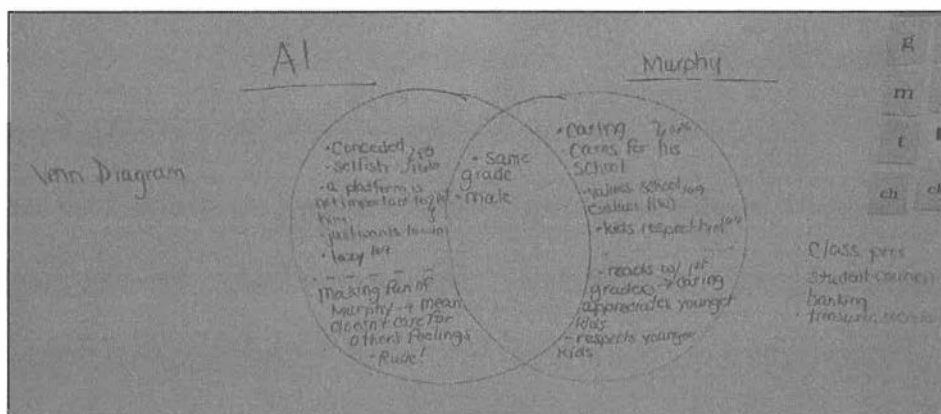 Al
Murphy
Venn Diagram
- Conceded
- selfish
- a platform is
not important to
him
- just wants to win
- lazy
- making fun of
Murphy → mean
doesn't care for
others feelings
- Rude!
- same
grade
- male
- caring
- cares for his
school
- values school
- kids respect him
- reads w/ 1st
graders → caring
appreciates younger
kids
- respects younger
kids
g
m
t
ch
Class pres
student council
banking